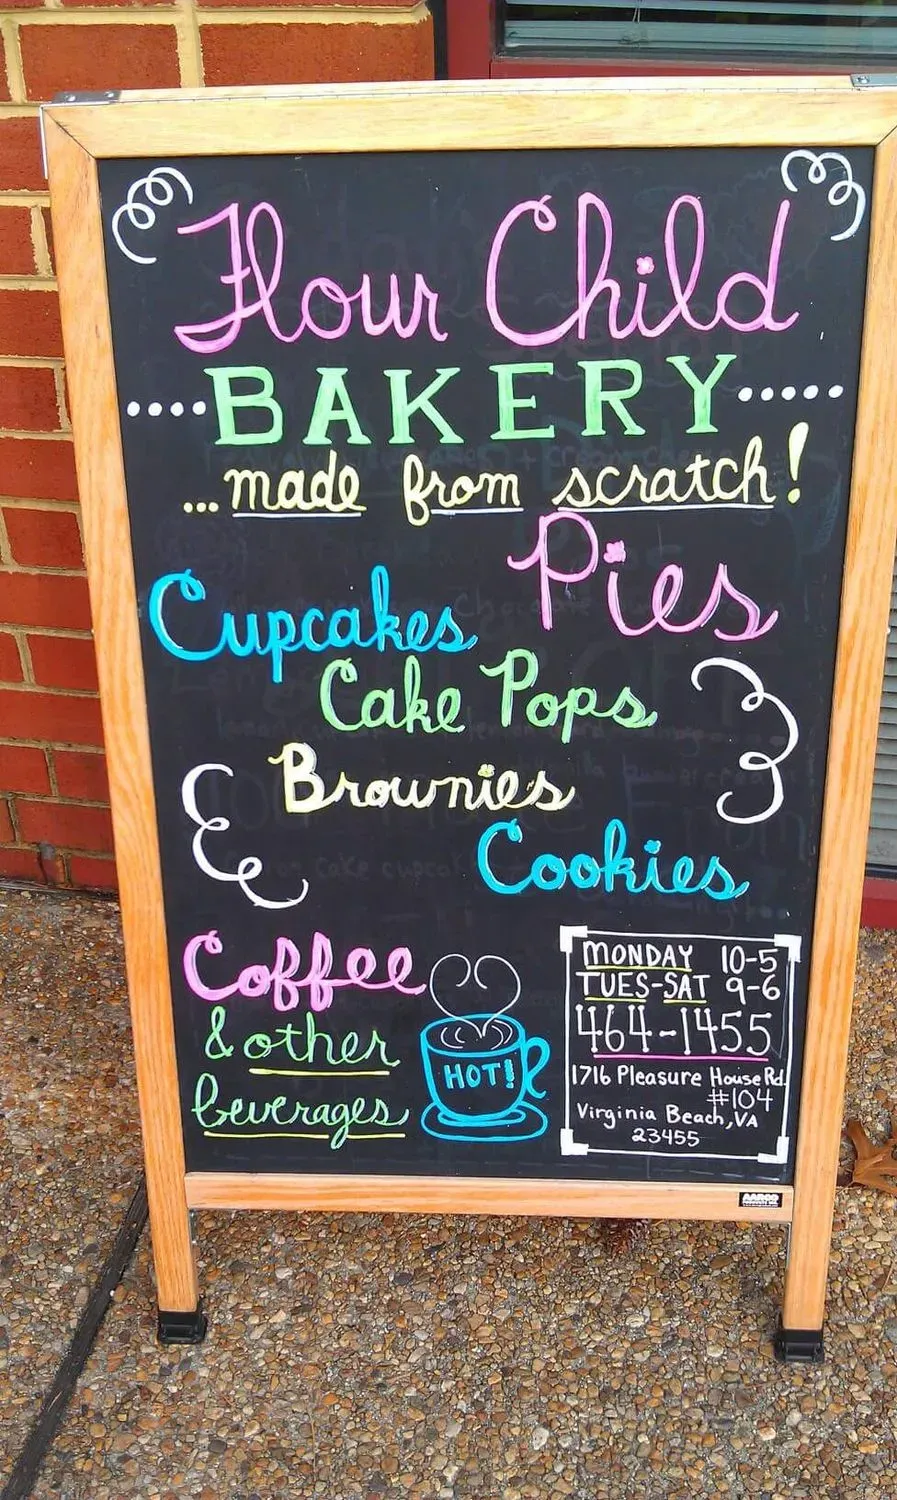 Flour Child
BAKERY
...made from scratch!
Pies
Cupcakes
Cake Pops
Brownies
Cookies
Coffee
& other
beverages
HOT!
MONDAY 10-5
TUES-SAT 9-6
464-1455
1716 Pleasure House Rd.
#104
Virginia Beach, VA
23455
AARCO